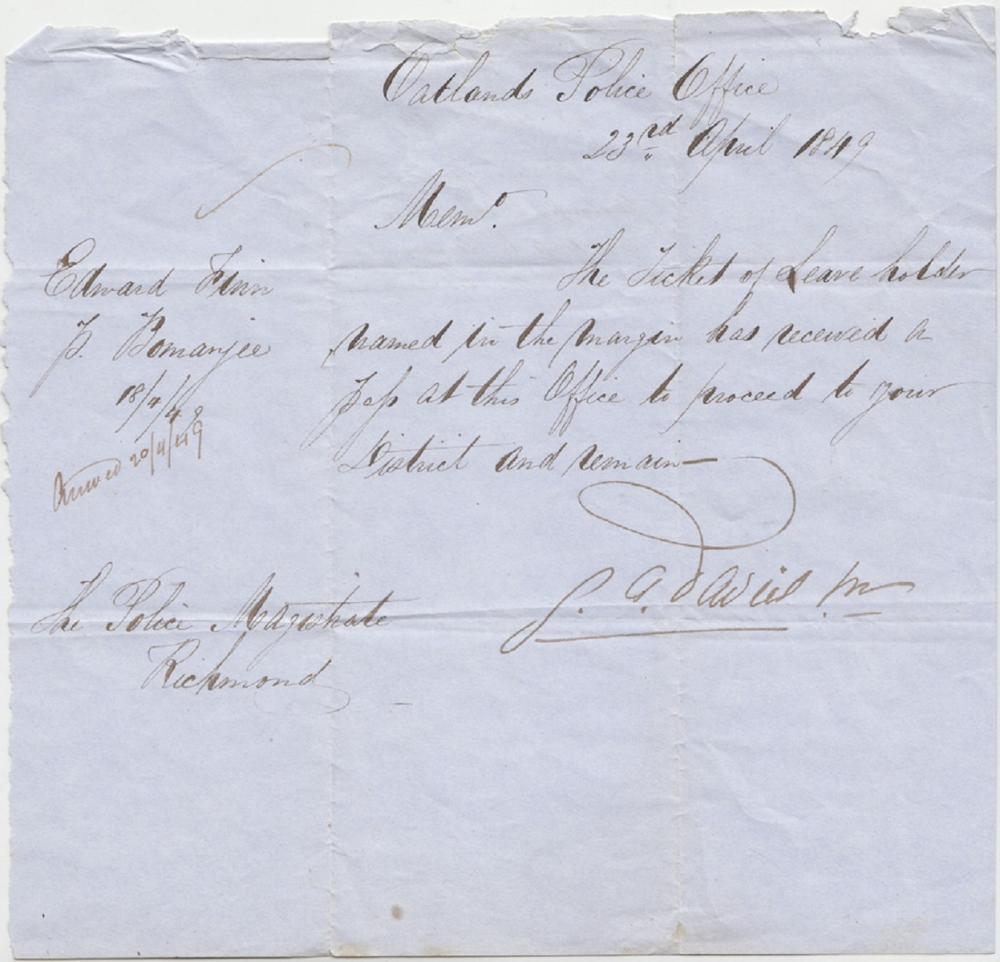 Oatlands Police Office
23rd April 1849
Memo.
Edward Finn
p. Bomanjee
18/4/49
20/4/49
The Ticket of Leave holder
named in the margin has received a
Pass at this Office to proceed to your
District and remain—
The Police Magistrate
Richmond